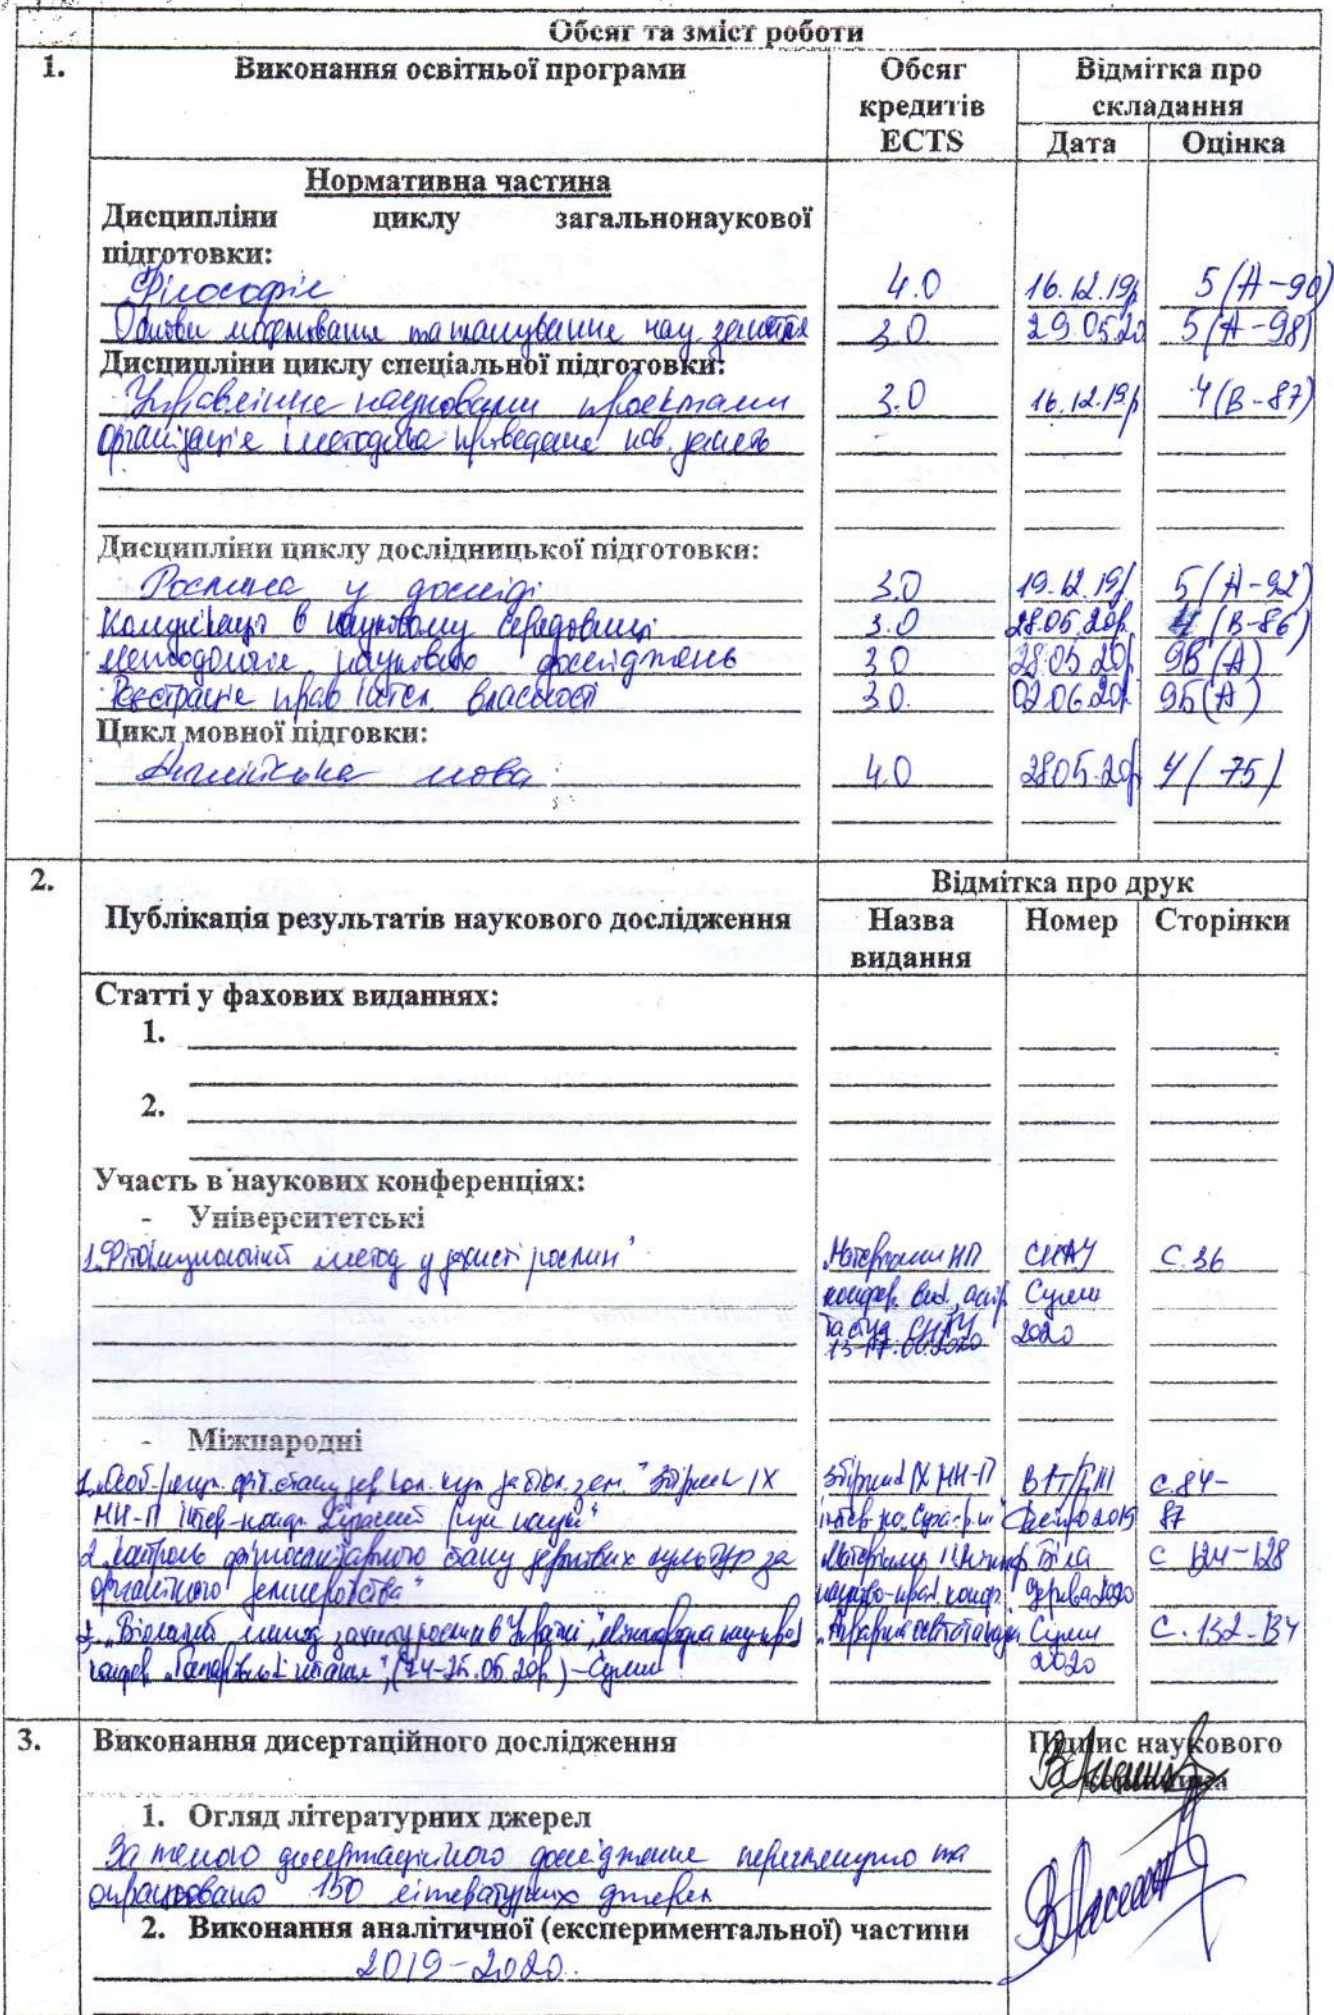 Обсяг та зміст роботи
1. Виконання освітньої програми
Обсяг кредитів ECTS
Відмітка про складання
Дата Оцінка
Нормативна частина
Дисципліни циклу загальнонаукової
підготовки:
Філософія 4.0 16.12.19р 5 (А-90)
Основи та планування наук 3.0 29.05.20 5 (А-98)
Дисципліни циклу спеціальної підготовки:
Управління науковими проектами 3.0 16.12.19р 4 (В-87)
організація і методика проведення занять
Дисципліни циклу дослідницької підготовки:
Рослина у досліді 3.0 19.12.19р. 5 (А-92)
Комунікації в науковому середовищі 3.0 28.05.20р. 4 (В-86)
Методологія наукових досліджень 3.0 28.05.20р. (А)
Реєстрація прав інтел. власності 3.0. 02.06.20р. 95 (А)
Цикл мовної підговки:
Англійська мова 4.0 28.05.20р 4 (75)
2. Публікація результатів наукового дослідження
Відмітка про друк
Назва видання Номер Сторінки
Статті у фахових виданнях:
1.
2.
Участь в наукових конференціях:
- Університетські
1. метод у захисті рослин" Матеріали НП СНАУ С. 36
конфер. викл., асп. Суми
та студ. СНАУ 2020
- Міжнародні
1. фіт. стану зер. кол. кул. за біол. зем." Збірник ІХ Збірник ІХ НН-П с. 84-
НН-П інтер-конф. науки" Дніпро 2019 87
2. Контроль фітосанітарного стану зернових культур за Матеріали Біла С 124-128
органічного землеробства" науково-прак. конф. Церква 2020
3. "Біологічний метод захисту рослин в Україні", Міжнародна наукова Суми С. 132-134
конфер. "Гончарівські читання", (24-25.05.20р.) - Суми 2020
3. Виконання дисертаційного дослідження
Підпис наукового
керівника
1. Огляд літературних джерел
За темою дисертаційного дослідження переглянуто та
опрацьовано 150 літературних джерел
2. Виконання аналітичної (експериментальної) частини
2019-2020.